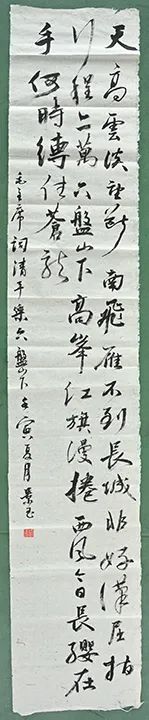 天高雲淡望斷南飛雁不到長城非好漢屈指
行程二萬六盤山下高峰紅旗漫捲西風今日長纓在
手何時縛住蒼龍
毛主席詞清平樂六盤山下壬寅夏月景玉